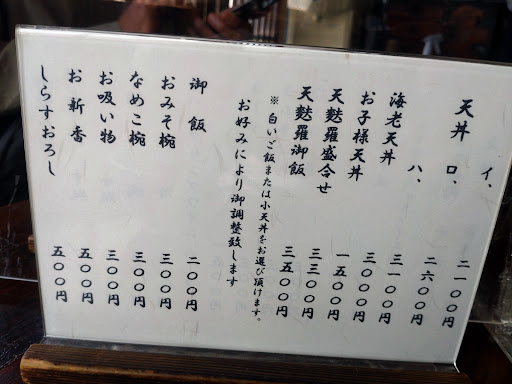 イ、 二一〇〇円
天丼 ロ、 二六〇〇円
ハ、 三一〇〇円
海老天丼 三〇〇〇円
お子様天丼 一五〇〇円
天麩羅盛合せ 三三〇〇円
天麩羅御飯 三五〇〇円
※ 白いご飯または小天丼をお選び頂けます。
お好みにより御調整致します
御飯 二〇〇円
おみそ椀 三〇〇円
なめこ椀 三〇〇円
お吸い物 三〇〇円
お新香 五〇〇円
しらすおろし 五〇〇円